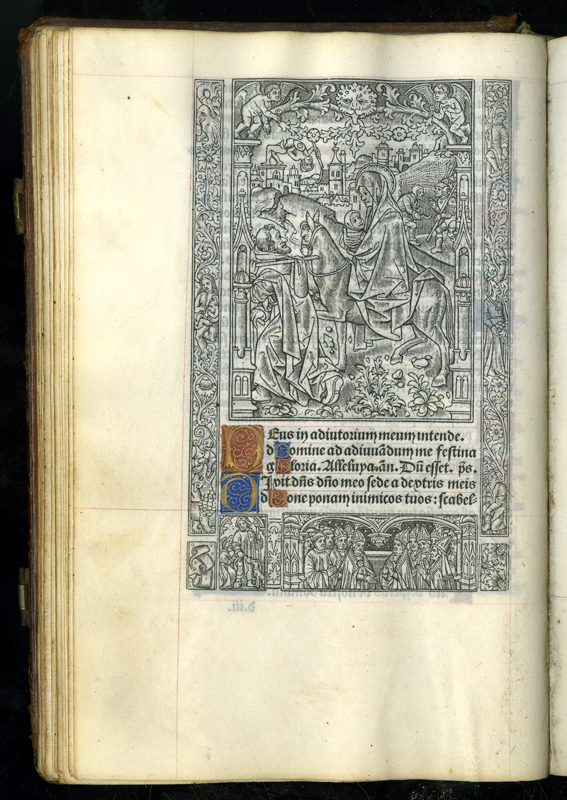 DEus in adiutorium meum intende.
dDomine ad adiuuādum me festina
gGloria. Alleluya. añ. Dū esset. ps.
DIxit dñs dño meo sede a dextris meis
dDone ponam inimicos tuos: scabel-
b.iii.